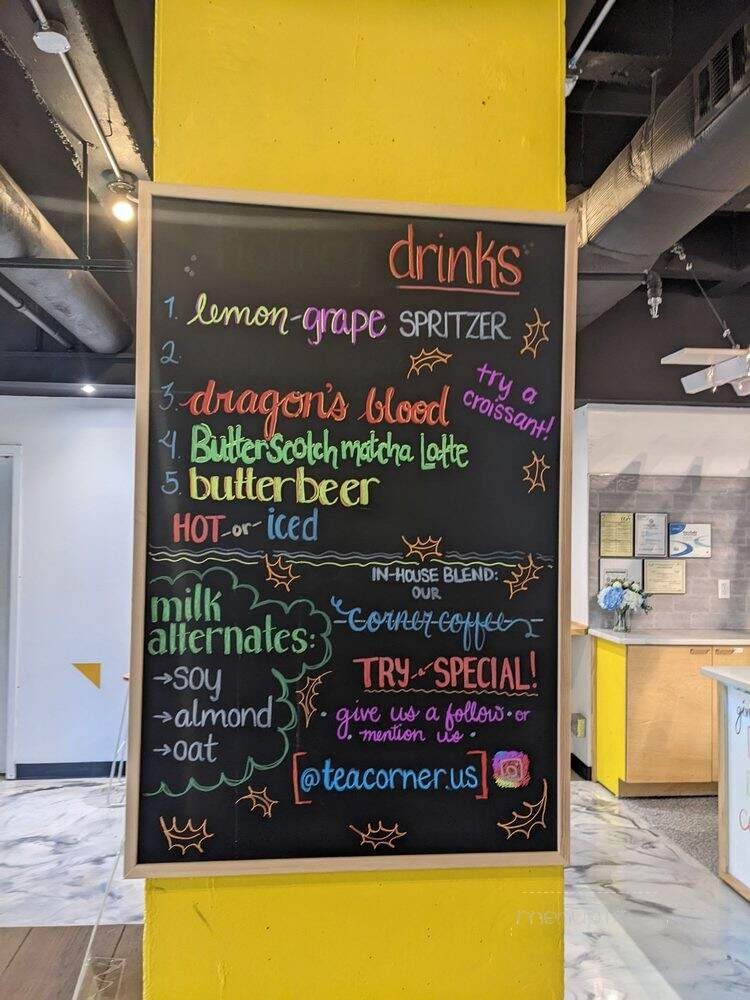 drinks
1. lemon-grape SPRITZER
2.
3. dragon's blood
try a
croissant!
4. Butterscotch matcha Latte
5. butterbeer
HOT -or- iced
milk
alternates:
→soy
→almond
→oat
IN-HOUSE BLEND:
OUR
corner coffee
TRY a SPECIAL!
give us a follow or
mention us
[@teacorner.us]